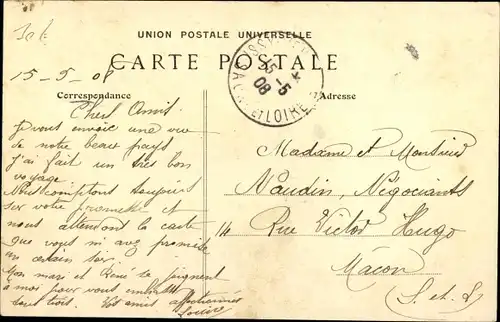 UNION POSTALE UNIVERSELLE
CARTE POSTALE
15-5-08
15-5
08
ET LOIRE
Correspondance
Adresse
Chers Amis
Je vous envoie une vue
de notre beau pays
j'ai fait un très bon
voyage
Nous comptons toujours
sur votre promesse et
nous attendons la carte
que vous ni avez promise
un certain soir.
Mon mari et René se joignent
à moi pour vous embrasser
tous trois. Vos amis affectionnés
Louise
Madame et Monsieur
Naudin, Négociants
14 Rue Victor Hugo
Mâcon
(S. et L)